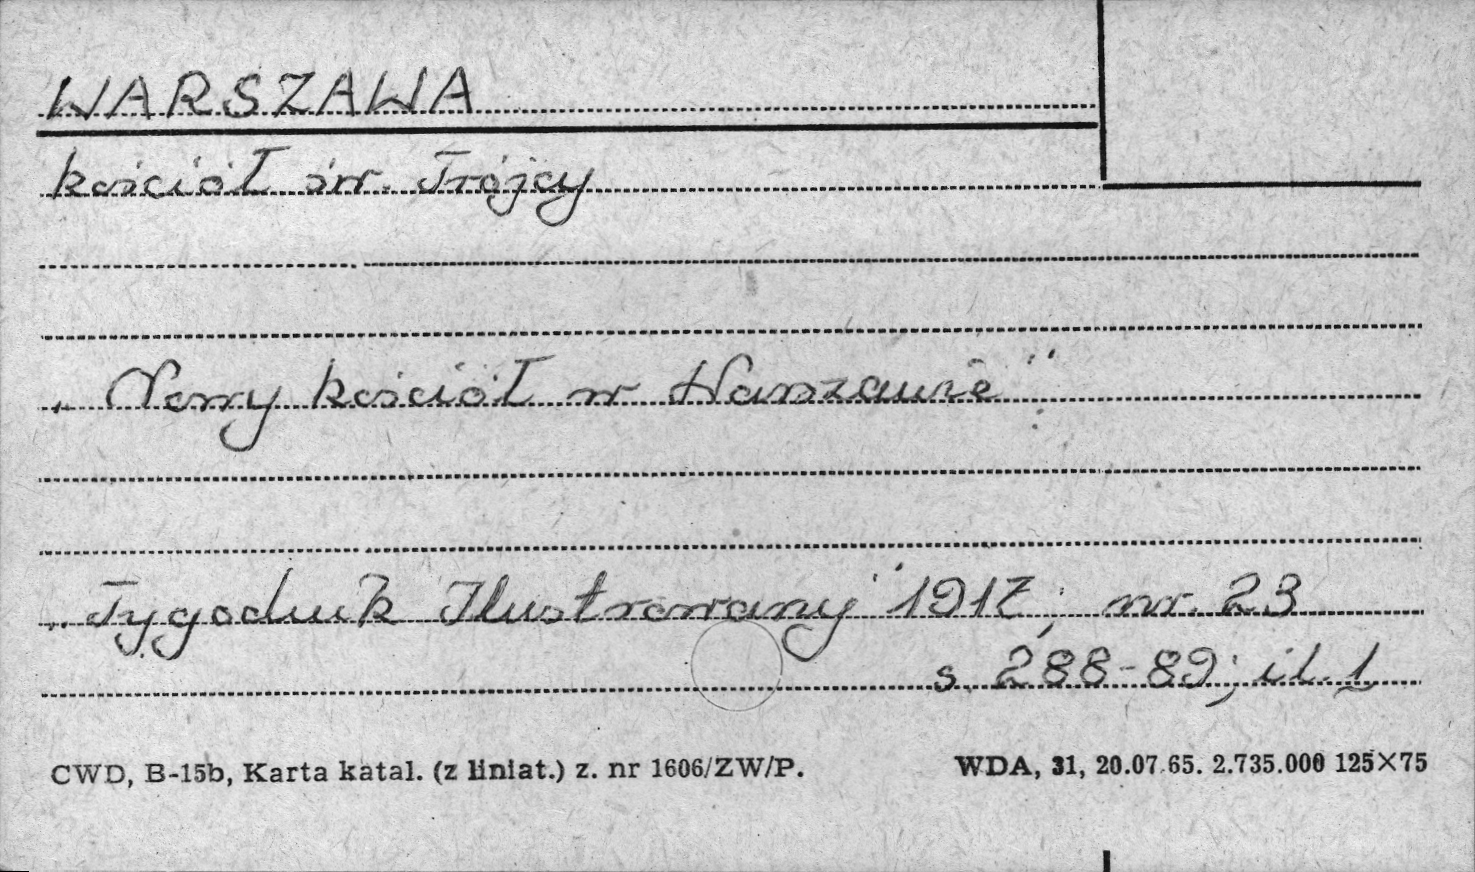 WARSZAWA
kościół św. Trójcy
„Nowy kościół w Warszawie"
„Tygodnik Ilustrowany" 1917, nr. 23
s. 288-89; il. 1
CWD, B-15b, Karta katal. (z liniat.) z. nr 1606/ZW/P.
WDA, 31, 20.07.65. 2.735.000 125×75